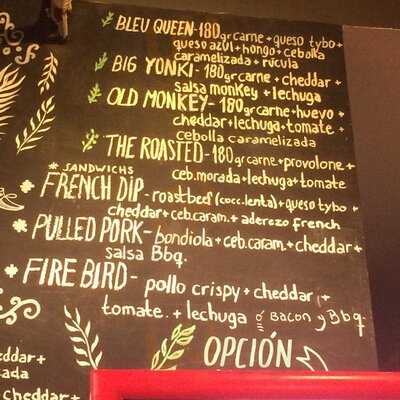 BLEU QUEEN-180gr carne+queso tybo+
queso azul+hongo+cebolla
caramelizada+rúcula
BIG YONKI-180gr carne+cheddar+
salsa monkey+lechuga
OLD MONKEY-180gr carne+huevo+
cheddar+lechuga+tomate+
cebolla caramelizada
THE ROASTED-180gr carne+provolone+
ceb.morada+lechuga+tomate
*SANDWICHS
FRENCH DIP-roastbeef(cocc.lenta)+queso tybo+
cheddar+ceb.caram.+aderezo french
PULLED PORK-bondiola+ceb.caram.+cheddar+
salsa Bbq.
FIRE BIRD-pollo crispy+cheddar+
tomate.+lechuga ó bacon y Bbq
OPCIÓN
eddar+
ada
cheddar+